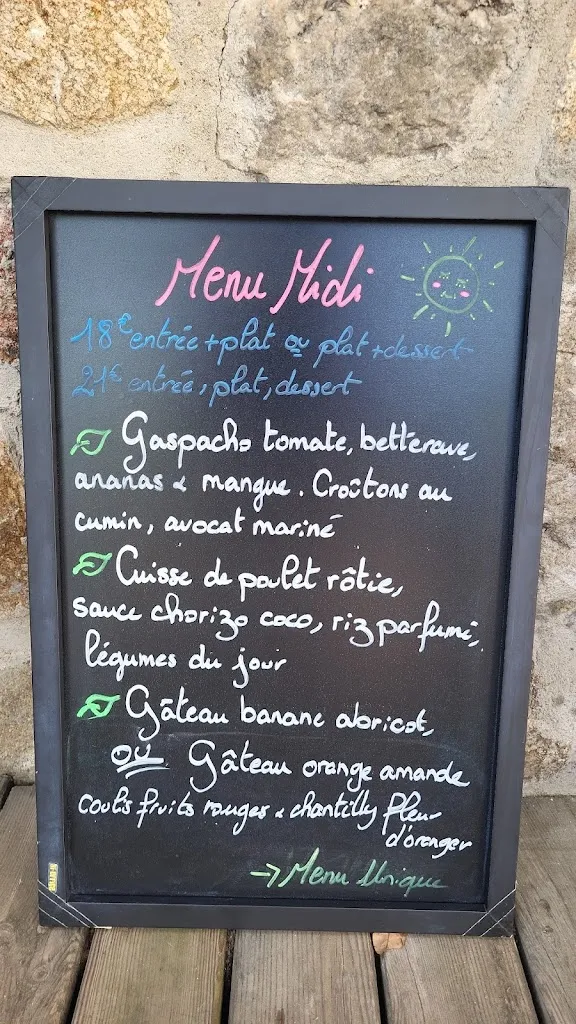 Menu Midi
18€ entrée + plat ou plat + dessert
21€ entrée, plat, dessert
Gaspacho tomate, betterave,
ananas & mangue. Croûtons au
cumin, avocat mariné
Cuisse de poulet rôtie,
sauce chorizo coco, riz parfumé,
légumes du jour
Gâteau banane abricot,
ou Gâteau orange amande
coulis fruits rouges & chantilly fleur
d'oranger
→ Menu Unique